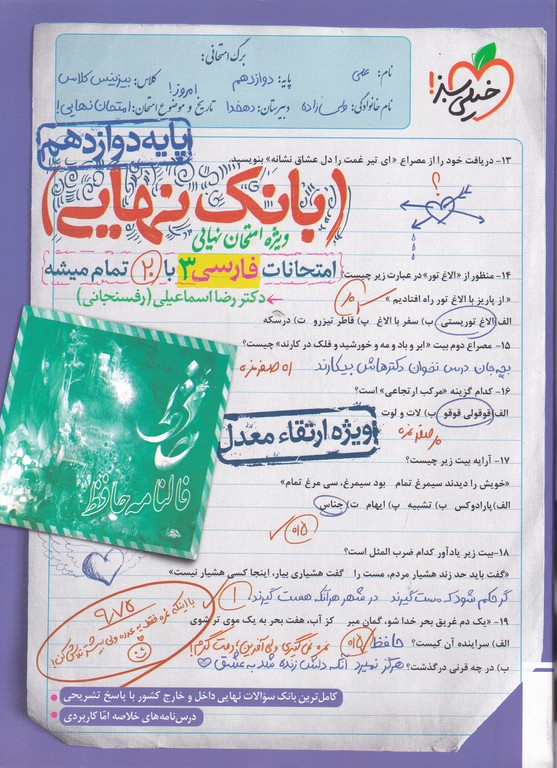 برگ امتحانی:
نام: علی
پایه: دوازدهم
کلاس: بیزینس کلاس
نام خانوادگی:
دبیرستان: دهخدا
تاریخ و موضوع امتحان: امروز! امتحان نهایی!
خیلی سبز!
پایه دوازدهم
۱۳- دریافت خود را از مصراع «ای تیر غمت را دل عشاق نشانه» بنویسید.
؟
(بانک نهایی)
ویژه امتحان نهایی
امتحانات فارسی ۳ با ۲۰ تمام میشه
دکتر رضا اسماعیلی (رفسنجانی)
۱۴- منظور از «الاغ تور» در عبارت زیر چیست؟
« از پاریز با الاغ تور راه افتادیم »
الف) الاغ توریستی ب) سفر با الاغ پ) قاطر تیزرو ت) درسکه
۱۵- مصراع دوم بیت «ابر و باد و مه و خورشید و فلک در کارند» چیست؟
بچه جان درس نخوان دکترهاش بیکارند
۱۶- کدام گزینه «مرکب ارتجاعی» است؟
الف) قوقولی قوقو ب) لات و لوت
ویژه ارتقاء معدل
۱۷- آرایه بیت زیر چیست؟
«خویش را دیدند سیمرغ تمام بود سیمرغ، سی مرغ تمام»
الف) پارادوکس ب) تشبیه پ) ایهام ت) جناس
فالنامه حافظ
۱۸- بیت زیر یادآور کدام ضرب المثل است؟
«گفت باید حد زند هشیار مردم، مست را گفت هشیاری بیار، اینجا کسی هشیار نیست»
گر حکم شود که مست گیرند در شهر هر آنکه هست گیرند
۱
۱۹- «یک دم غریق بحر خدا شو، گمان مبر کز آب، هفت بحر به یک موی تر شوی
الف) سراینده آن کیست؟ حافظ
ب) در چه قرنی درگذشت؟ هرگز نمیرد آنکه دلش زنده شد به عشق
کامل‌ترین بانک سوالات نهایی داخل و خارج کشور با پاسخ تشریحی
درس‌نامه‌های خلاصه امّا کاربردی